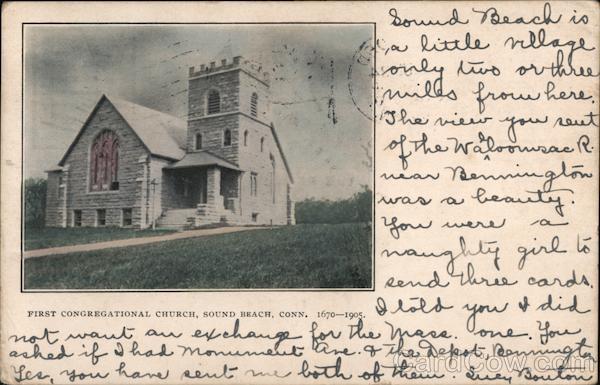 Sound Beach is
a little village
only two or three
miles from here.
The view you sent
of the Waloomsac R.
near Bennington
was a beauty.
You were a
naughty girl to
send three cards.
FIRST CONGREGATIONAL CHURCH, SOUND BEACH, CONN. 1670—1905.
I told you I did
not want an exchange for the Mass. one. You
asked if I had Monument Ave. & the Depot, Bennington
Yes, you have sent me both of them Lucy Bouton
CardCow.com